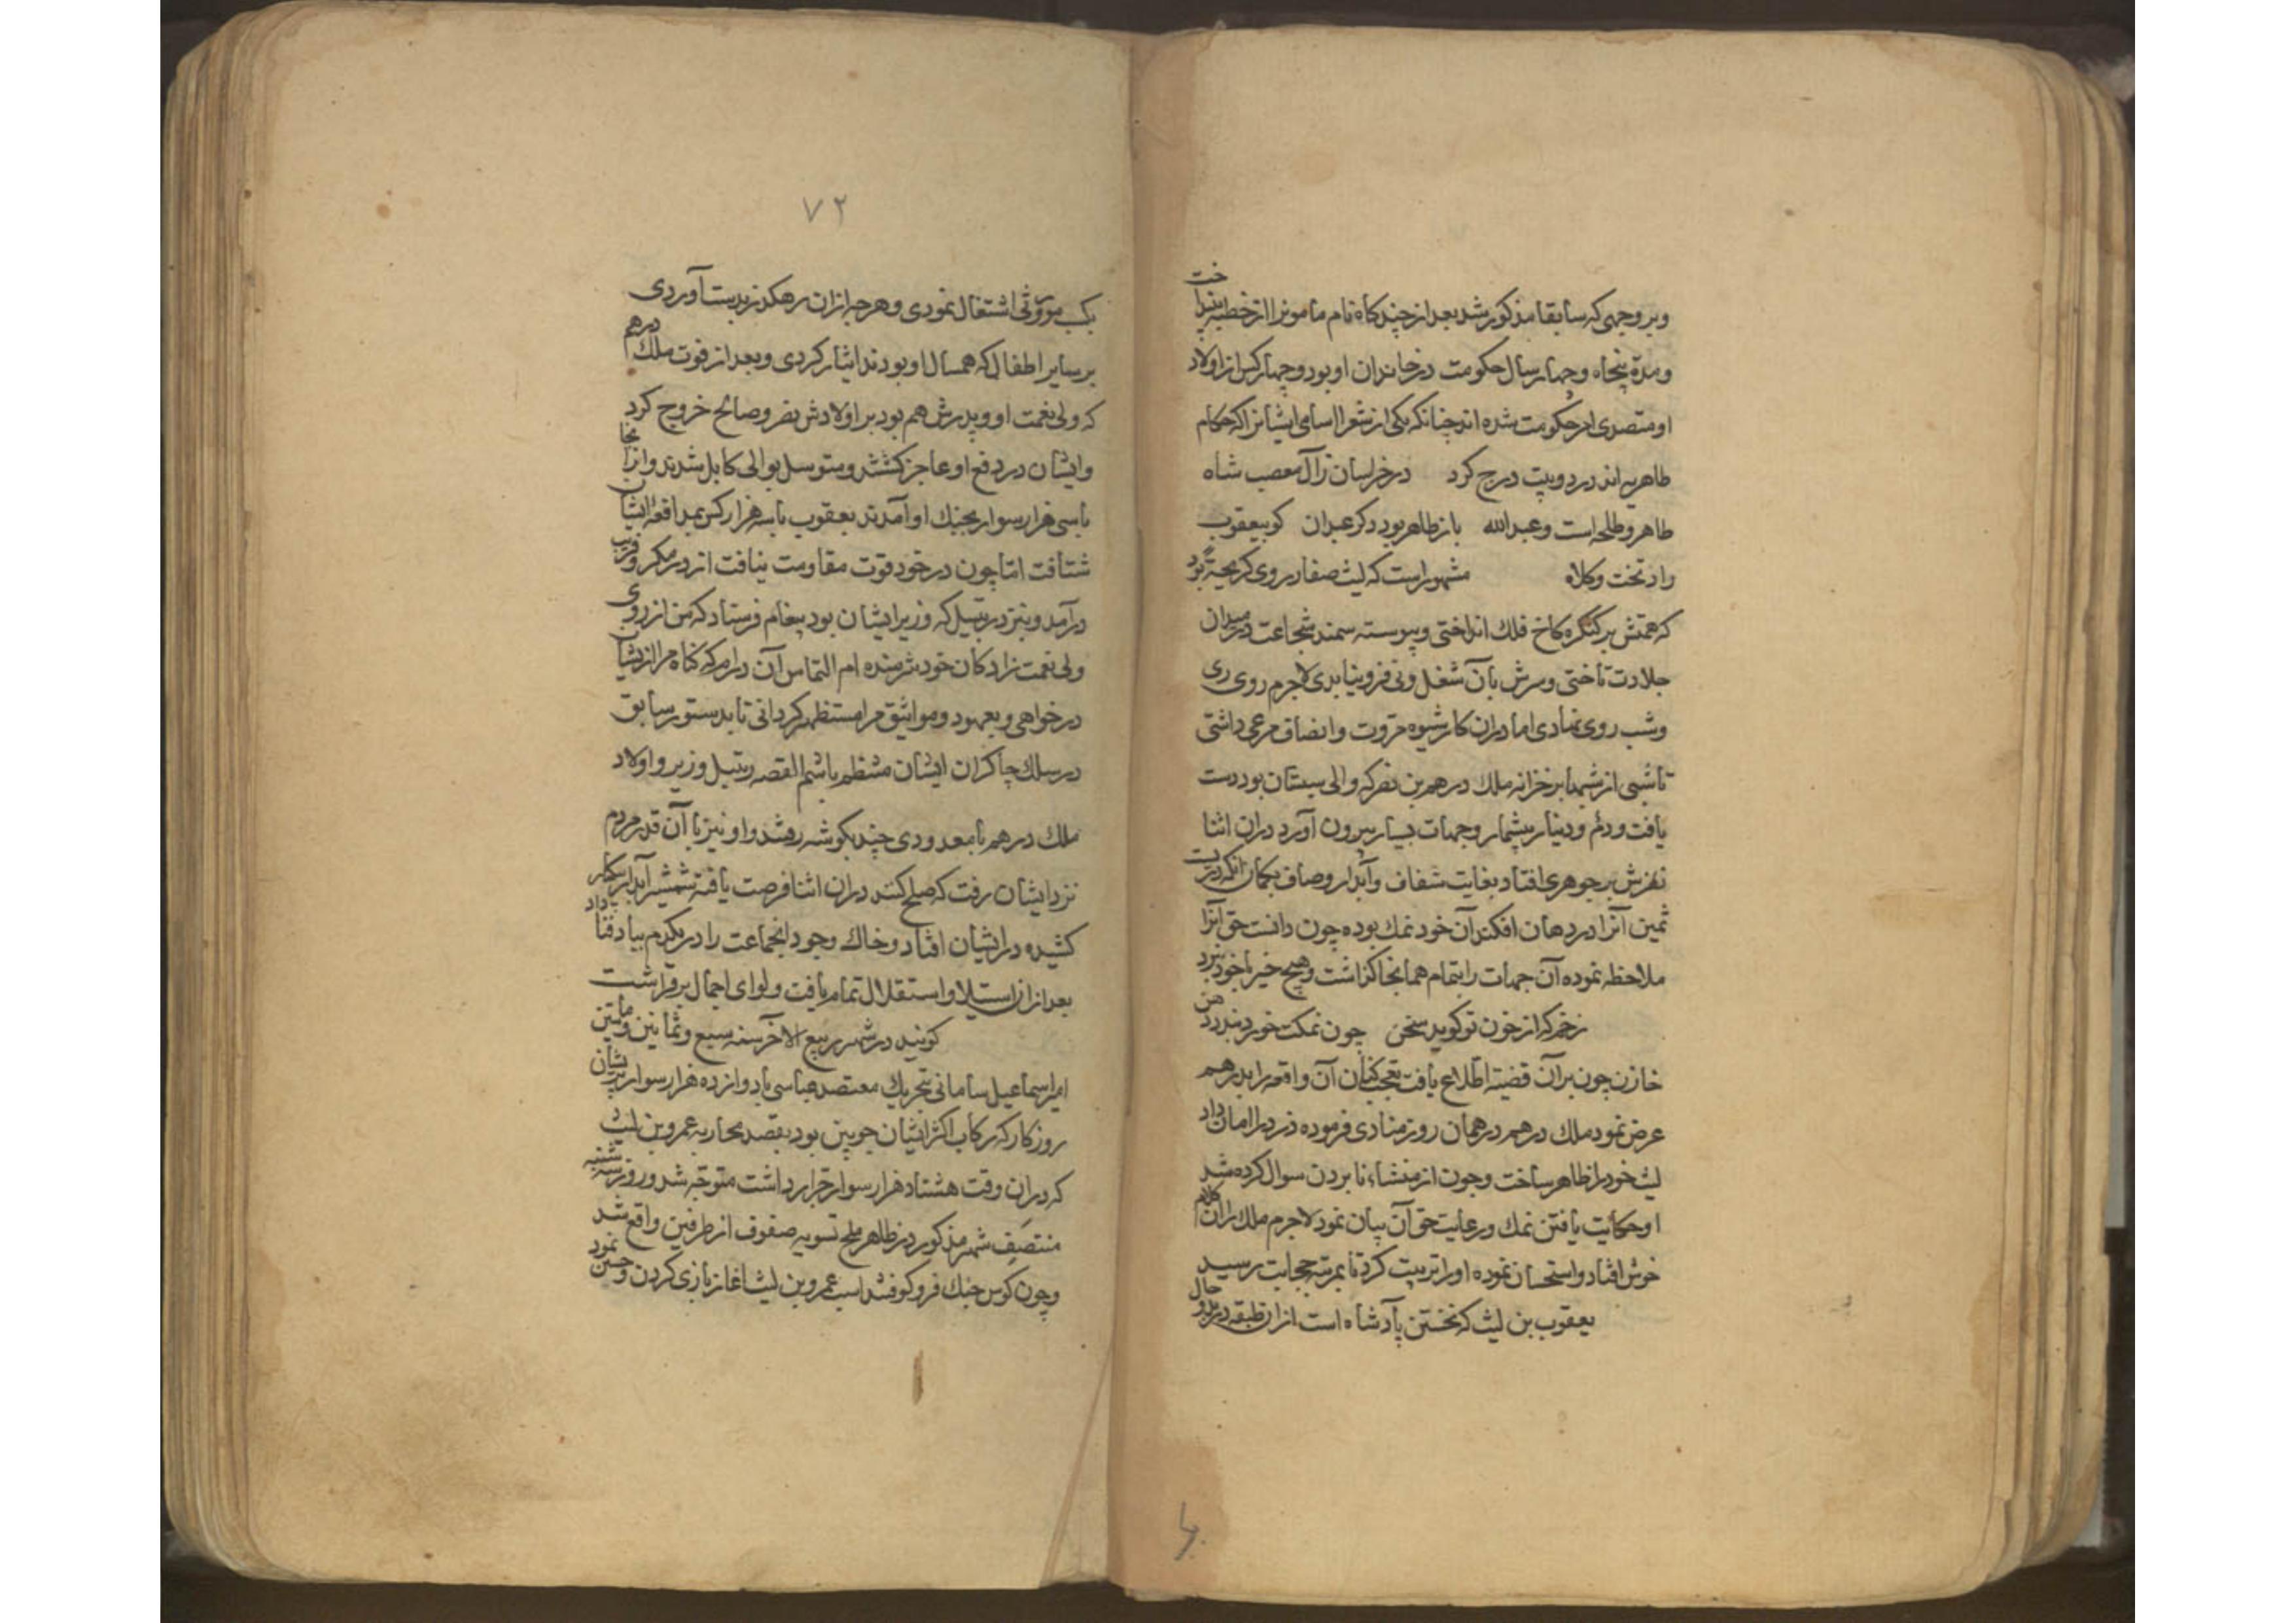 وبر وجهی که سابقا مذکور شد بعد از چند کاه نام مامونرا از خطبه بینداخت
ومدة پنجاه وچهار سال حکومت در خاندان او بود وچهار کس از اولاد
او متصدی امر حکومت شده اند چنانکه یکی از شعرا اسامی ایشانرا که حکام
طاهریه اند در دو بیت درج کرد در خراسان ز آل مصعب شاه
طاهر وطلحه است وعبد الله باز طاهر بود دکر عبدان کو بیعقوب
داد تخت وکلاه مشهور است که لیث صفار روی کر بچهٔ بود
که همتش بر کنکره کاخ فلك انداختی وپیوسته سمند شجاعت در میدان
جلادت تاختی وسرش بآن شغل ونی فرو نیامدی لاجرم روی بری
وشب روی نهادی اما دران کار شیوه مروت وانصاف مرعی داشتی
تا شبی از شبها بر خزانه ملك درهم بن نصر که والی سیستان بود دست
یافت ودرم ودینار بیشمار وجهات بسیار بیرون آورد دران اثنا
نظرش بر جوهری افتاد بغایت شفاف وآبدار وصاف بکمان انکه دریست
ثمین آنرا در دهان افکند آن خود نمك بوده چون دانست حق آنرا
ملاحظه نموده آن جهات را بتمام همانجا کذاشت وهیچ خیر با خود نبرد
زخم که از خون تو کوید سخن چون نمکت خورد ندرد دهن
خازن چون بران قضیه اطلاع یافت تعجب کنان آن واقعه را بدرهم
عرض نمود ملك درهم در همان روز منادی فرموده دزد را امان داد
لیث خود را ظاهر ساخت وچون از منشاء نا بردن سوال کرده شد
او حکایت یافتن نمك ورعایت حق آن بیان نمود لاجرم ملك را آن کلام
خوش افتاد واستحسان نموده او را تربیت کرد تا بمرتبه حجابت رسید
یعقوب بن لیث که نخستن پادشاه است ازان طبقه در بدو حال
۷۲
بکسب موروثی اشتغال نمودی وهرچه ازان رهکذر بدست آوردی
بر سایر اطفال که همسال او بودند ایثار کردی وبعد از فوت ملك درهم
که ولی نعمت او وپدرش هم بود بر اولادش نصر وصالح خروج کرد
وایشان در دفع او عاجز کشتند ومتوسل بوالی کابل شدند وازانجا
با سی هزار سوار بجنك او آمدند یعقوب با سه هزار کس بمدافعه ایشان
شتافت اما چون در خود قوت مقاومت نیافت از در مکر وفریب
درآمد وبنزد رتبیل که وزیر ایشان بود پیغام فرستاد که من از روی
ولی نعمت زادکان خود شرمنده ام التماس آن دارم که کناه مرا از ایشان
درخواهی وبعهود ومواثیق مرا مستظهر کردانی تا بدستور سابق
در سلك چاکران ایشان منتظم باشم القصه رتبیل وزیر واولاد
ملك درهم با معدودی چند بکوشه رفتند واو نیز با آن قدر مردم
نزد ایشان رفت که صلح کند دران اثنا فرصت یافته شمشیر آبدار یکبار
کشیده در ایشان افتاد وخاك وجود انجماعت را در یکدم بباد فنا داد
بعد ازان استیلا واستقلال تمام یافت ولوای اجمال برفراشت
کویند در شهر ربیع الآخر سنه سبع وثمانین ومایتین
امیر اسماعیل سامانی بتحریك معتضد عباسی با دوازده هزار سوار پریشان
روزکار که رکاب اکثر ایشان چوبین بود بقصد محاربه عمرو بن لیث
که دران وقت هشتاد هزار سوار جرار داشت متوجه شد وروز سه شنبه
منتصف شهر مذکور در ظاهر بلخ تسویه صفوف از طرفین واقع شد
وچون کوس جنك فرو کوفتند اسب عمرو بن لیث اغاز بازی کردن وجستن نمود